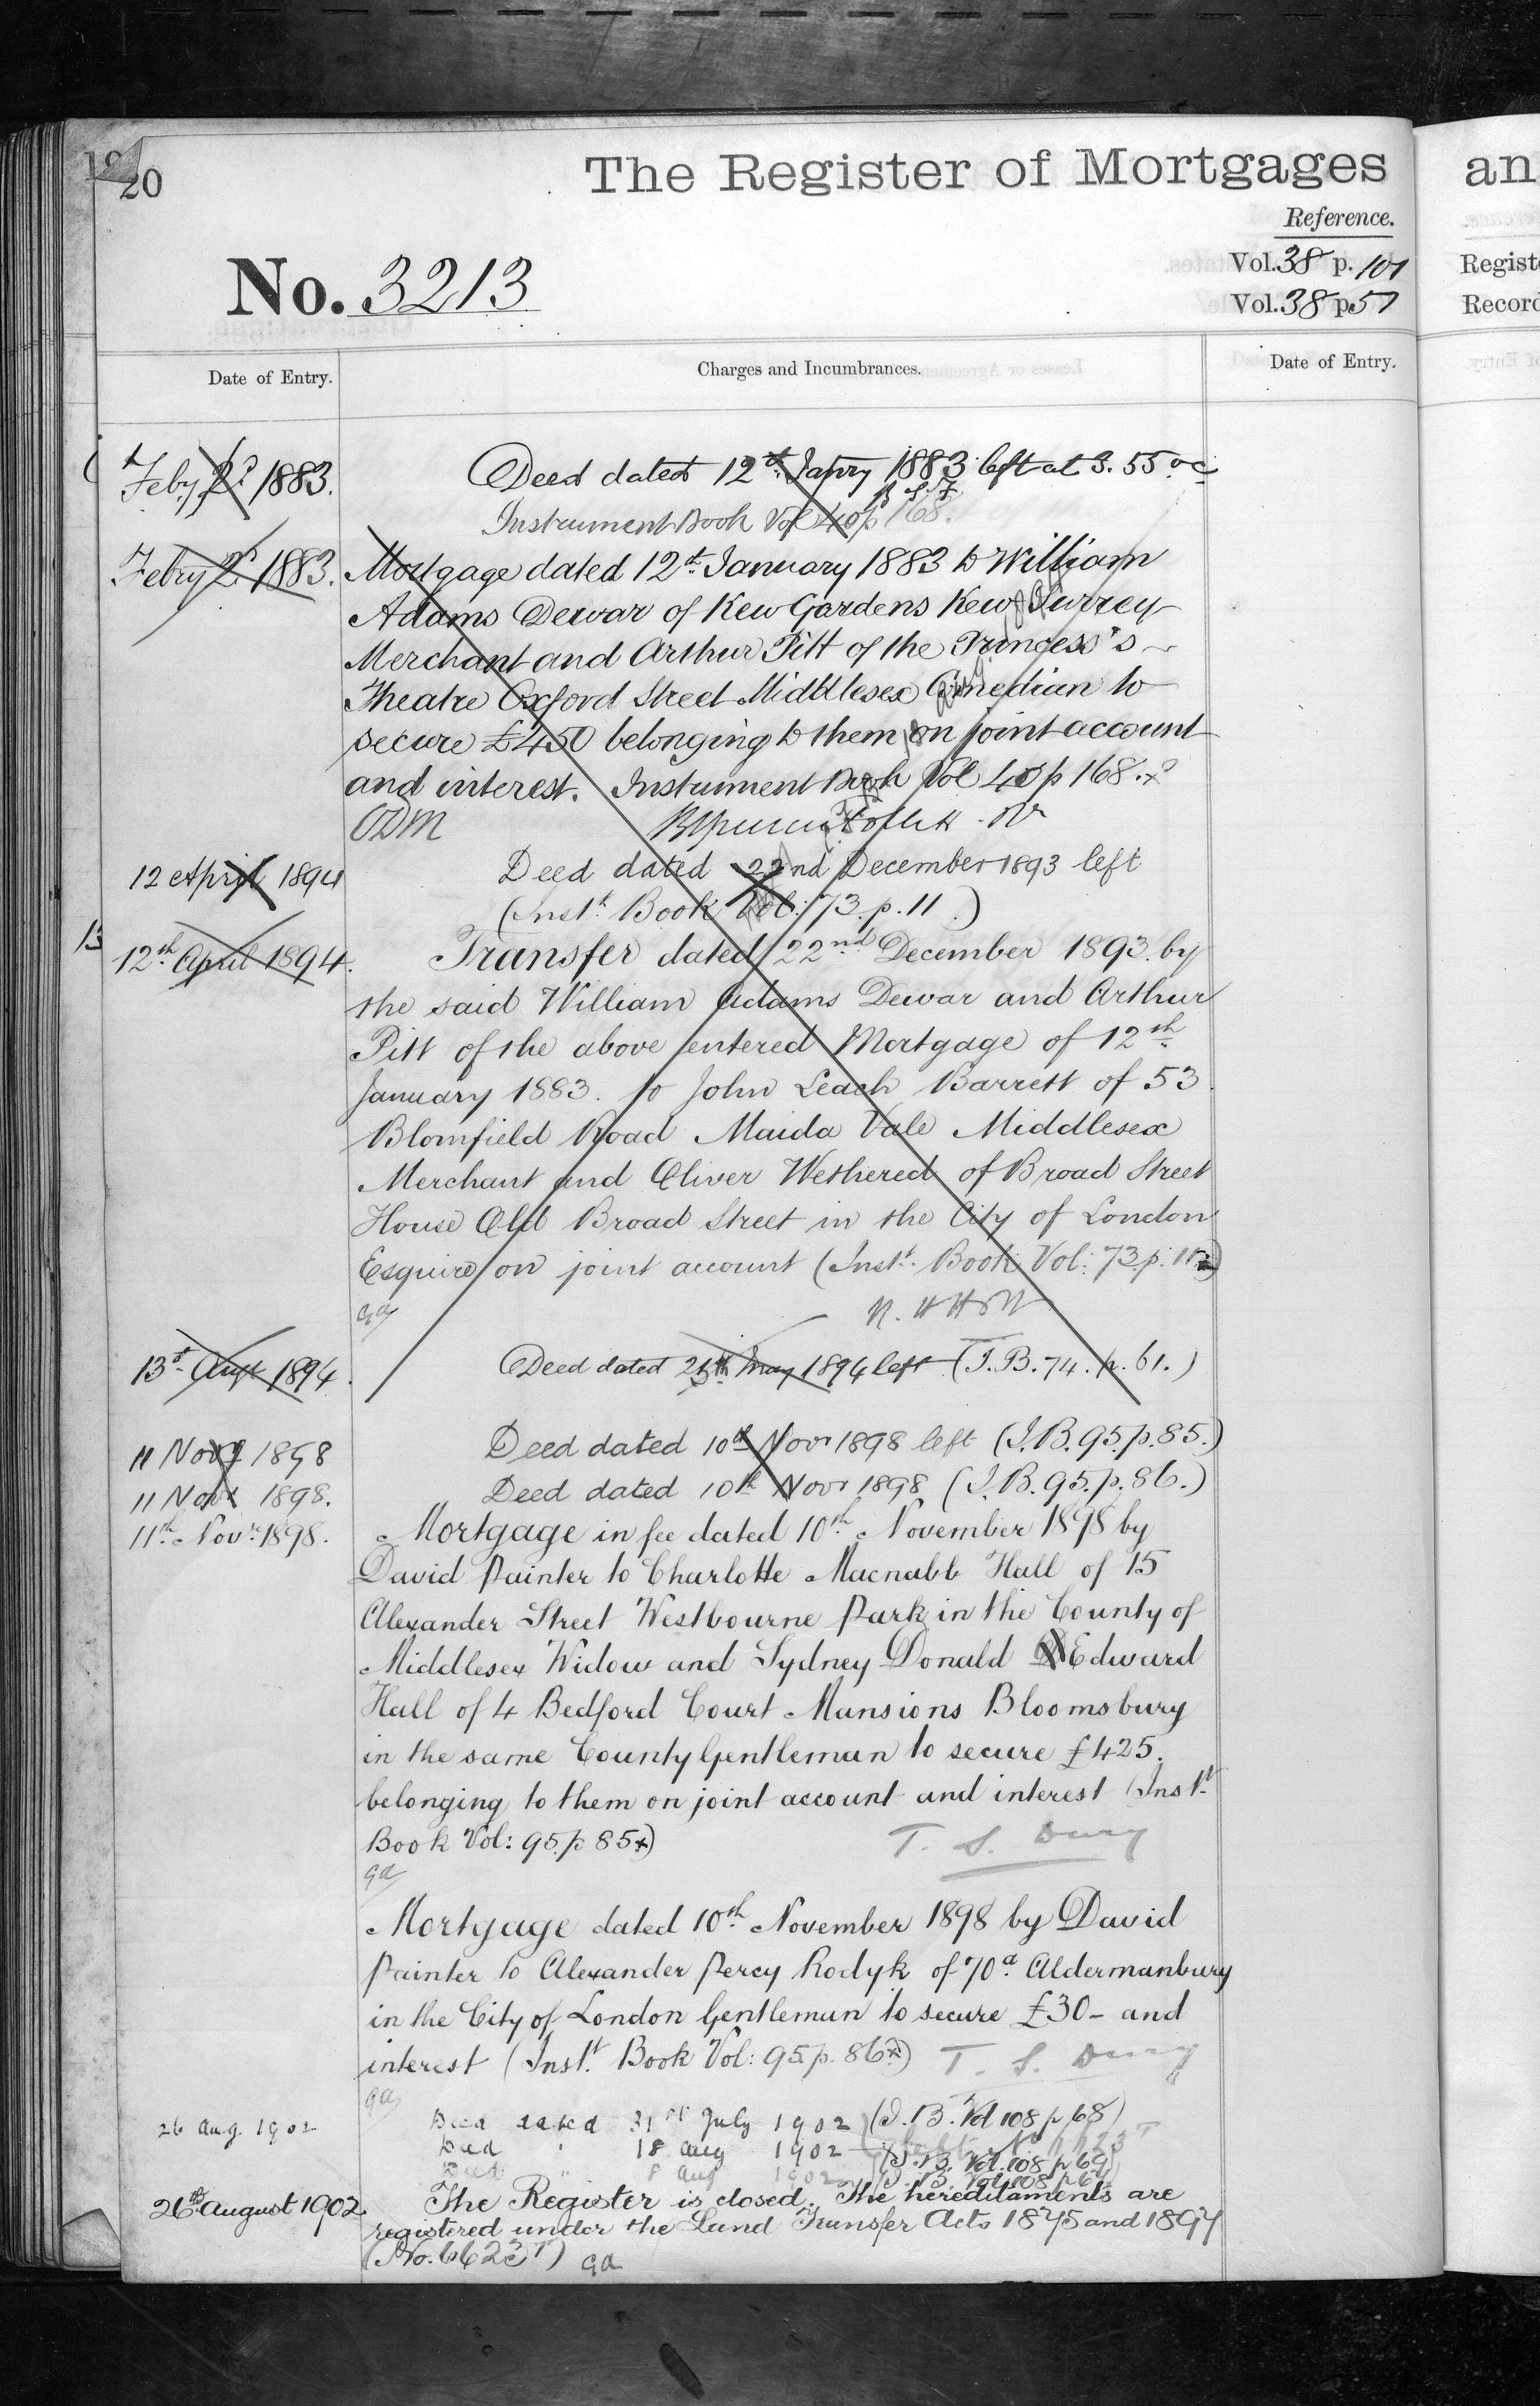 20
The Register of Mortgages
an
Reference.
Vol. 38 p. 101
Regist
No. 3213
Vol. 38 p 57
Record
Date of Entry.
Charges and Incumbrances.
Date of Entry.
Feby 2d 1883.
Deed dated 12th Janry 1883 left at 3.55
Instrument Book Vol 40 p 168.
Febry 2d 1883.
Mortgage dated 12th January 1883 to William
Adams Dewar of Kew Gardens Kew Surrey
Merchant and Arthur Pitt of the Princess's
Theatre Oxford Street Middlesex Comedian to
secure £450 belonging to them on joint account
and interest. Instrument Book Vol 40 p 168.
ODM
12 April 1894
Deed dated 22nd December 1893 left
(Inst. Book Vol: 73. p. 11.)
12th April 1894.
Transfer dated 22nd December 1893. by
the said William Adams Dewar and Arthur
Pitt of the above entered Mortgage of 12th
January 1883. to John Leach Barrett of 53
Blomfield Road Maida Vale Middlesex
Merchant and Oliver Wethered of Broad Street
House Old Broad Street in the City of London
Esquire on joint account (Inst. Book Vol: 73. p. 11)
ga
13th Augt 1894.
Deed dated 25th May 1894 left (I.B. 74. p. 61.)
11 Novr 1898
Deed dated 10th Novr 1898 left (I.B. 95. p. 85.)
11 Novr 1898.
Deed dated 10th Novr 1898 (I.B. 95. p. 86.)
11th Novr 1898.
Mortgage in fee dated 10th November 1898 by
David Painter to Charlotte Macnabb Hall of 15
Alexander Street Westbourne Park in the County of
Middlesex Widow and Sydney Donald Edward
Hall of 4 Bedford Court Mansions Bloomsbury
in the same County Gentleman to secure £425.
belonging to them on joint account and interest (Inst.
Book Vol: 95. p 85)
T. S. Dury
ga
Mortgage dated 10th November 1898 by David
Painter to Alexander Percy Rodyk of 70a Aldermanbury
in the City of London Gentleman to secure £30- and
interest (Inst. Book Vol: 95 p. 86) T. S. Dury
ga
26 Aug. 1902
Deed dated 31st July 1902 (I.B. Vol 108 p 68)
Deed " 18 Aug 1902 (I.B. Vol. 108 p 69)
Deed " 8 Aug 1902 (I.B. Vol. 108 p
26th August 1902.
The Register is closed. The hereditaments are
registered under the Land Transfer Acts 1875 and 1897
(No. 6623) ga